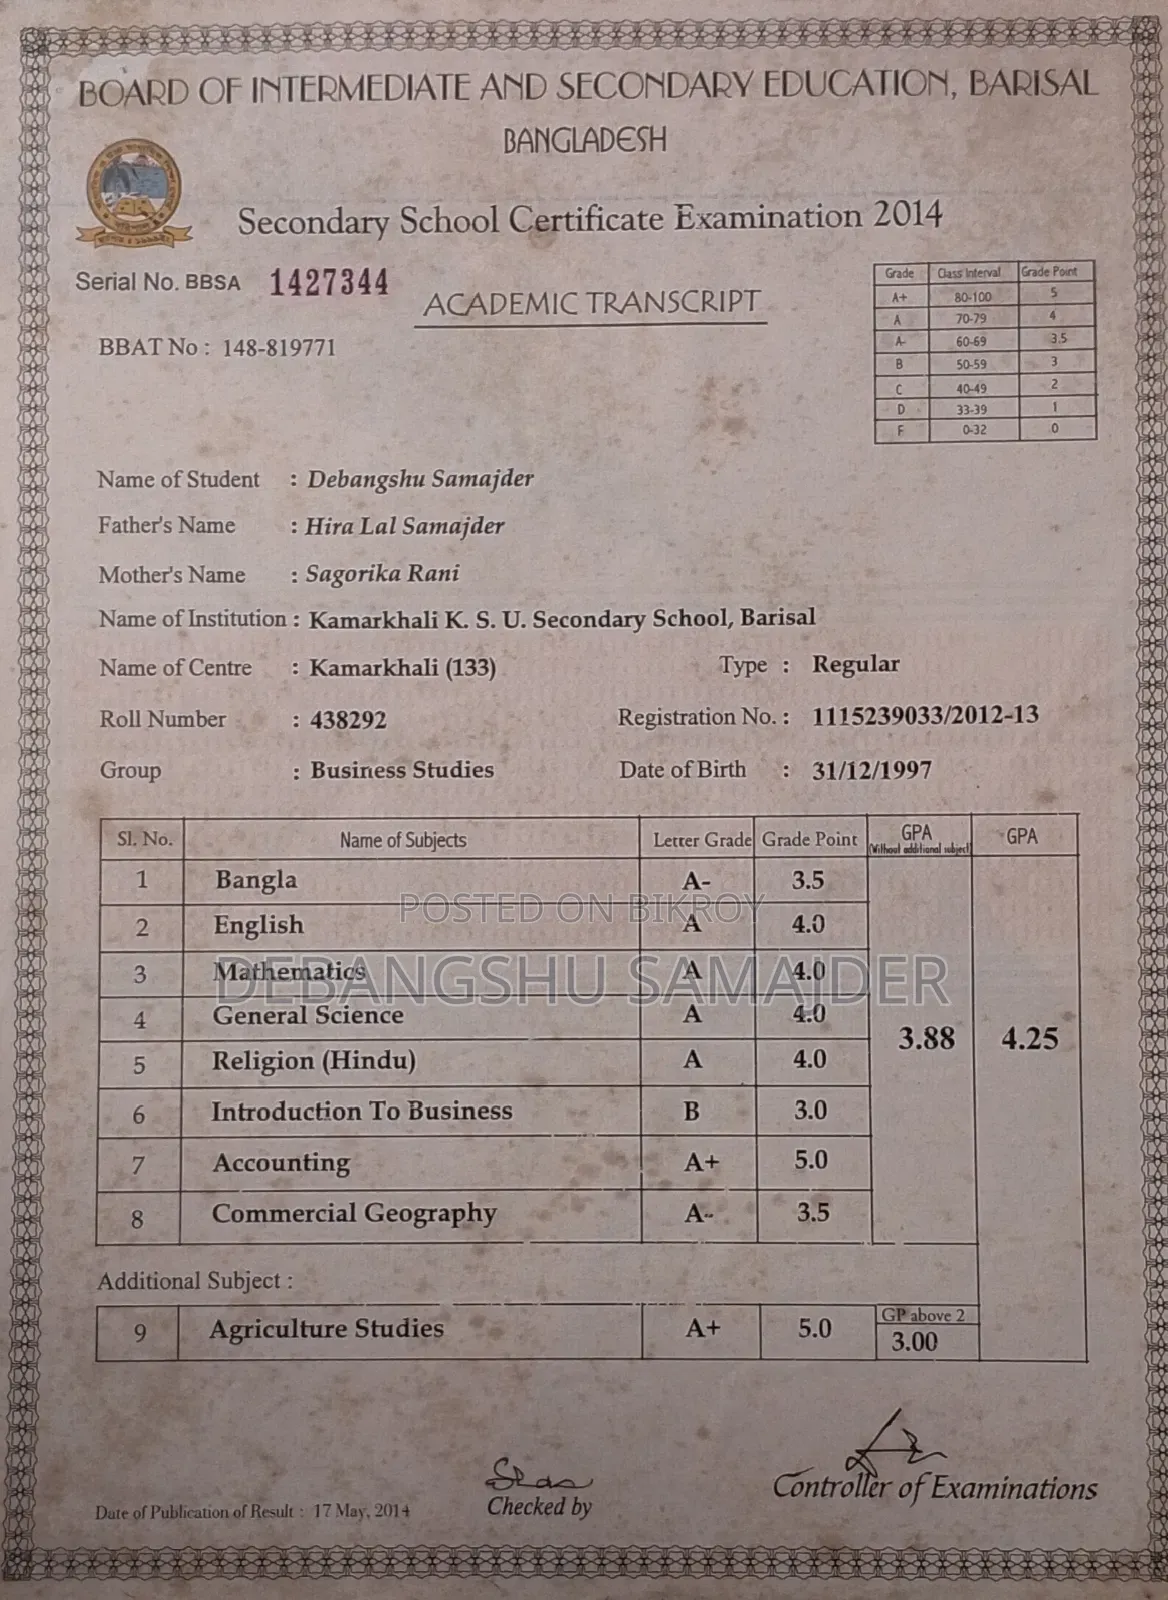 BOARD OF INTERMEDIATE AND SECONDARY EDUCATION, BARISAL
BANGLADESH
Secondary School Certificate Examination 2014
Serial No. BBSA 1427344
ACADEMIC TRANSCRIPT
BBAT No : 148-819771
Grade Class Interval Grade Point
A+ 80-100 5
A 70-79 4
A- 60-69 3.5
B 50-59 3
C 40-49 2
D 33-39 1
F 0-32 0
Name of Student : Debangshu Samajder
Father's Name : Hira Lal Samajder
Mother's Name : Sagorika Rani
Name of Institution : Kamarkhali K. S. U. Secondary School, Barisal
Name of Centre : Kamarkhali (133) Type : Regular
Roll Number : 438292 Registration No. : 1115239033/2012-13
Group : Business Studies Date of Birth : 31/12/1997
Sl. No. Name of Subjects Letter Grade Grade Point GPA (Without additional subject) GPA
1 Bangla A- 3.5
POSTED ON BIKROY
2 English A 4.0
3 Mathematics A 4.0
DEBANGSHU SAMAJDER
4 General Science A 4.0
3.88 4.25
5 Religion (Hindu) A 4.0
6 Introduction To Business B 3.0
7 Accounting A+ 5.0
8 Commercial Geography A- 3.5
Additional Subject :
9 Agriculture Studies A+ 5.0 GP above 2
3.00
Controller of Examinations
Checked by
Date of Publication of Result : 17 May, 2014